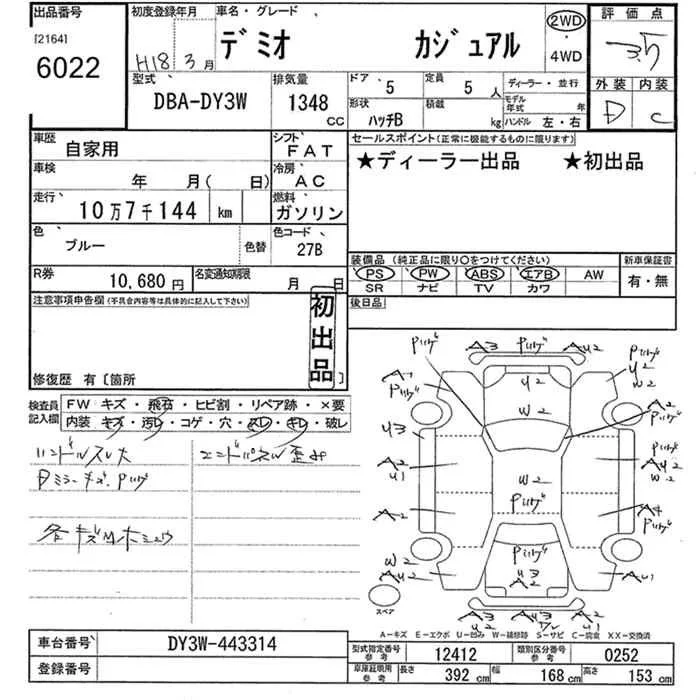 出品番号 初度登録年月 車名・グレード 評価点
[2164] H18年3月 デミオ カジュアル 2WD・4WD 3.5
6022 外装 内装
型式 排気量 ドア 5 定員 5人 ディーラー・並行
DBA-DY3W 1348cc 形状 ハッチB 積載 kg モデル年式 年 ハンドル 左・右 D C
車歴 自家用 シフト FAT セールスポイント(正常に機能するものに限ります)
車検 年 月( 日) 冷房 AC ★ディーラー出品 ★初出品
走行 10万7千144 km 燃料 ガソリン
色 ブルー 色替 色コード 27B
装備品(純正品に限り○をつけてください) 新車保証書
R券 10,680円 名変通知期限 月 日 PS PW ABS エアB AW 有・無
SR ナビ TV カワ
注意事項申告欄(不具合内容等は具体的に記入して下さい) 初出品 後日品
修復歴 有〔箇所 〕
検査員記入欄 FW キズ・飛石・ヒビ割・リペア跡・×要
内装 キズ・汚レ・コゲ・穴・スレ・キレ・破レ
ハンドルスレ大 エンドパネル歪み
Dミラーキズ・Pハゲ
各キズM
A3 Pハゲ A2 U2
A1 Pハゲ U2 W2 Pハゲ U2 W2
U3 A2 Pハゲ
A2 U1 Pハゲ A2 W2
A2 Pハゲ A4 Pハゲ
W2 AU2 Pハゲ U3 A2 AU1
スペア A3 U2 A2 U1
A-キズ E-エクボ U-凹み W-補修跡 S-サビ C-腐食 XX-交換済
車台番号 DY3W-443314 型式指定番号 参考 12412 類別区分番号 参考 0252
登録番号 車庫証明用 参考 長さ 392cm 幅 168cm 高さ 153cm